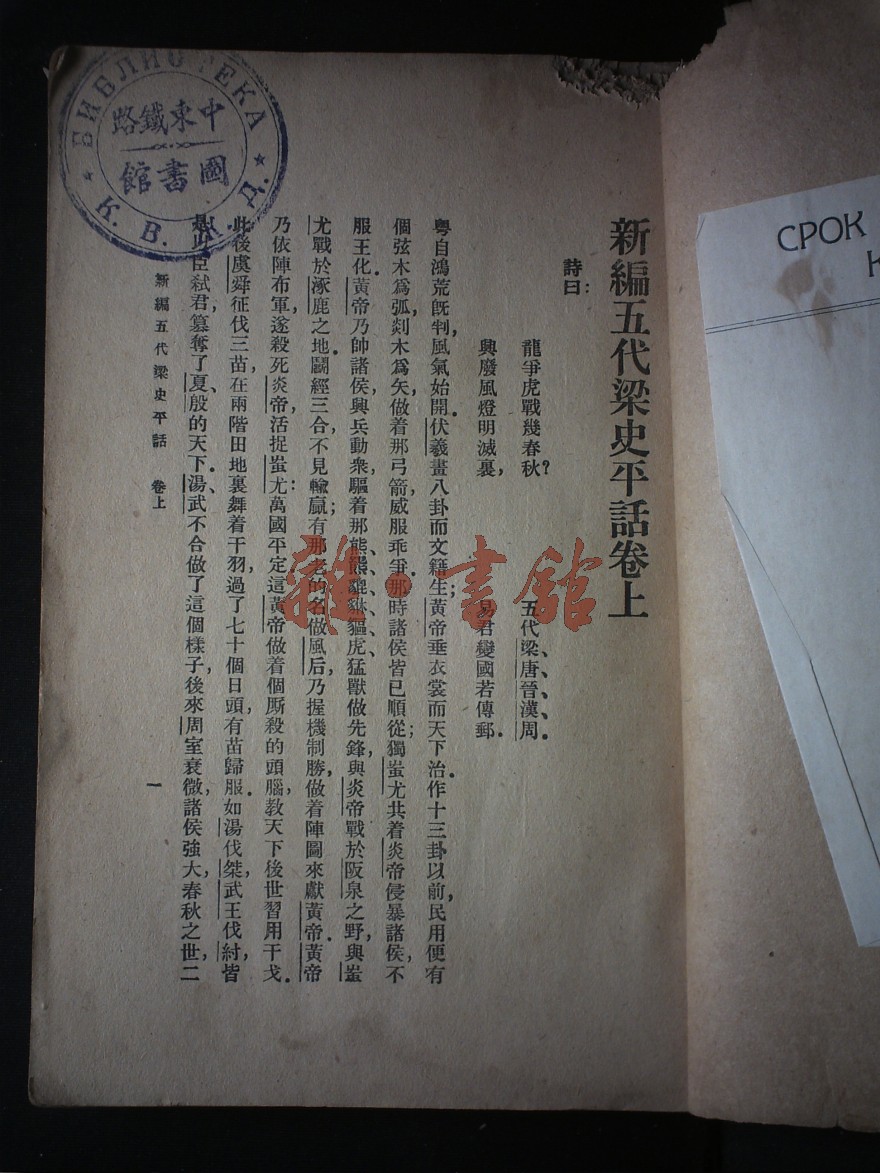 新編五代梁史平話卷上
詩曰：
龍爭虎戰幾春秋？　五代梁、唐、晉、漢、周。
興廢風燈明滅裏，　易君變國若傳郵。
粵自鴻荒旣判，風氣始開。伏羲畫八卦而文籍生；黃帝垂衣裳而天下治。作十三卦以前，民用便有
個弦木爲弧，剡木爲矢，做着那弓箭，威服乖爭。那時諸侯皆已順從；獨蚩尤共着炎帝侵暴諸侯，不
服王化。黃帝乃帥諸侯，興兵動衆，驅着那熊、羆、貔、貅、貙、虎、猛獸做先鋒，與炎帝戰於阪泉之野，與蚩
尤戰於涿鹿之地。鬭經三合，不見輸贏；有那老的名做風后，乃握機制勝，做着陣圖來獻黃帝。黃帝
乃依陣布軍，遂殺死炎帝，活捉蚩尤：萬國平定。這黃帝做着個厮殺的頭腦，敎天下後世習用干戈。
此後虞舜征伐三苗，在兩階田地裏舞着干羽，過了七十個日頭，有苗歸服。如湯伐桀，武王伐紂，皆
是以臣弒君，篡奪了夏、殷的天下。湯、武不合做了這個樣子，後來周室衰微，諸侯強大，春秋之世，二
新編五代梁史平話　卷上
一
БИБЛИОТЕКА
中東鐵路
圖書館
К. В. Ж. Д.
雜·書館
СРОК
К